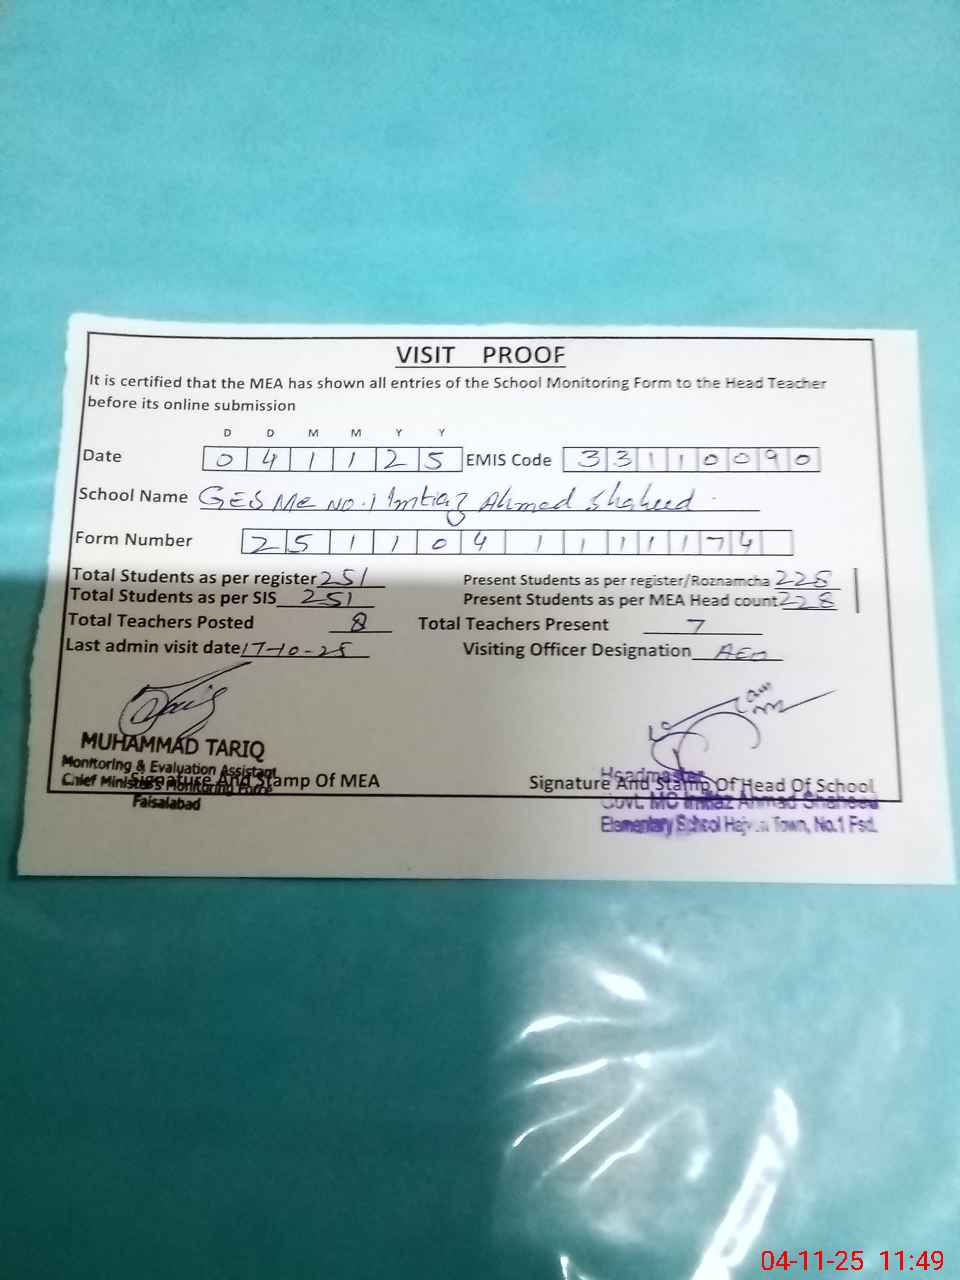 VISIT PROOF
It is certified that the MEA has shown all entries of the School Monitoring Form to the Head Teacher
before its online submission
D D M M Y Y
Date 0 4 1 1 2 5 EMIS Code 3 3 1 1 0 0 9 0
School Name GES MC NO.1 Imtiaz Ahmad Shaheed
Form Number 2 5 1 1 0 4 1 1 1 1 1 7 4
Total Students as per register 251 Present Students as per register/Roznamcha 228
Total Students as per SIS 251 Present Students as per MEA Head count 228
Total Teachers Posted 8 Total Teachers Present 7
Last admin visit date 17-10-25 Visiting Officer Designation AEO
MUHAMMAD TARIQ
Monitoring & Evaluation Assistant
Chief Minister's Monitoring Force
Faisalabad
Signature And Stamp Of MEA Signature And Stamp Of Head Of School
Headmaster
Govt. MC Imtiaz Ahmad Shaheed
Elementary School Town, No.1 Fsd.
04-11-25 11:49